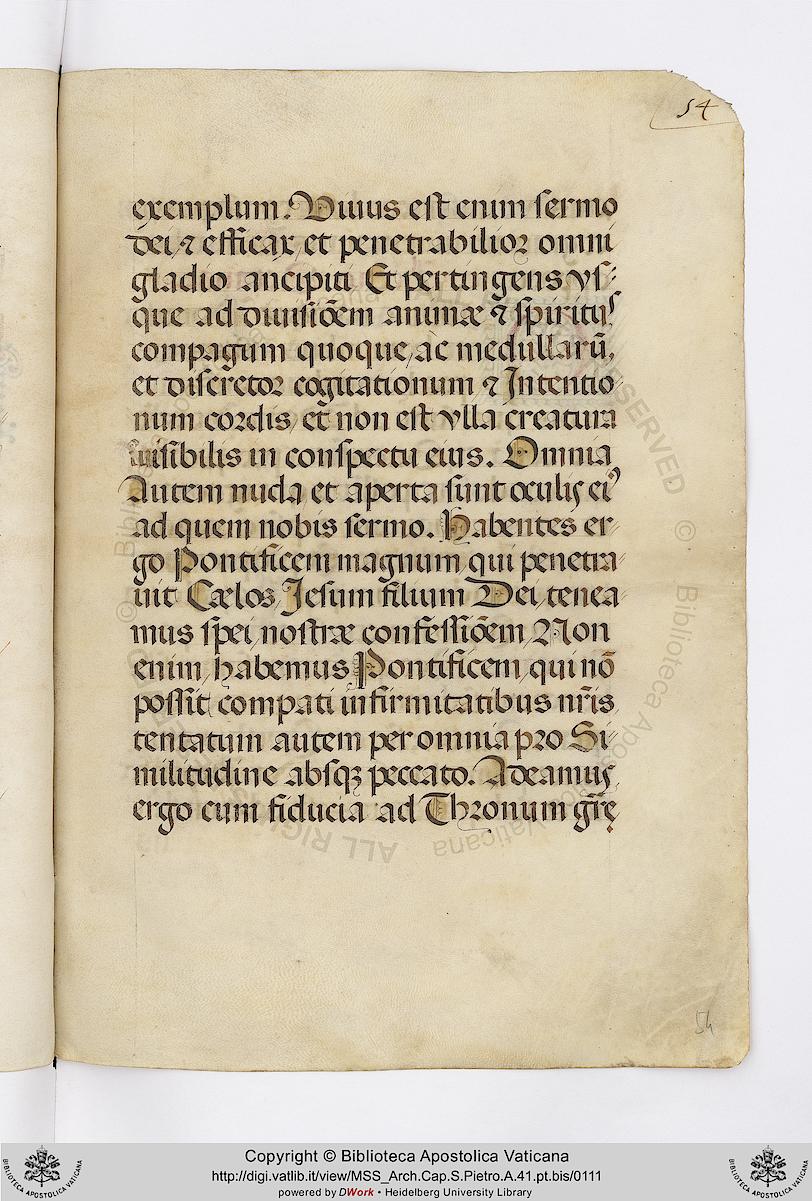 54
exemplum. Viuus est enim sermo
dei, ⁊ efficax, et penetrabilior omni
gladio ancipiti Et pertingens vs⸗
que ad diuisiõem animæ ⁊ spiritus
compagum quoque, ac medullarũ,
et discretor cogitationum ⁊ Intentio⸗
num cordis, et non est vlla creatura
inuisibilis in conspectu eius. Omnia
Autem nuda et aperta sunt oculis ei⁹
ad quem nobis sermo. Habentes er⸗
go Pontificem magnum qui penetra⸗
uit Cælos, Jesum filium Dei, tenea⸗
mus spei, nostræ confessiõem, Non
enim, habemus Pontificem, qui nõ
possit compati infirmitatibus nr̃is,
tentatum autem per omnia pro Si⸗
militudine absqꝫ peccato. Adeamus
ergo cum fiducia ad Thronum gr̃ę
54
Copyright © Biblioteca Apostolica Vaticana
http://digi.vatlib.it/view/MSS_Arch.Cap.S.Pietro.A.41.pt.bis/0111
powered by DWork • Heidelberg University Library